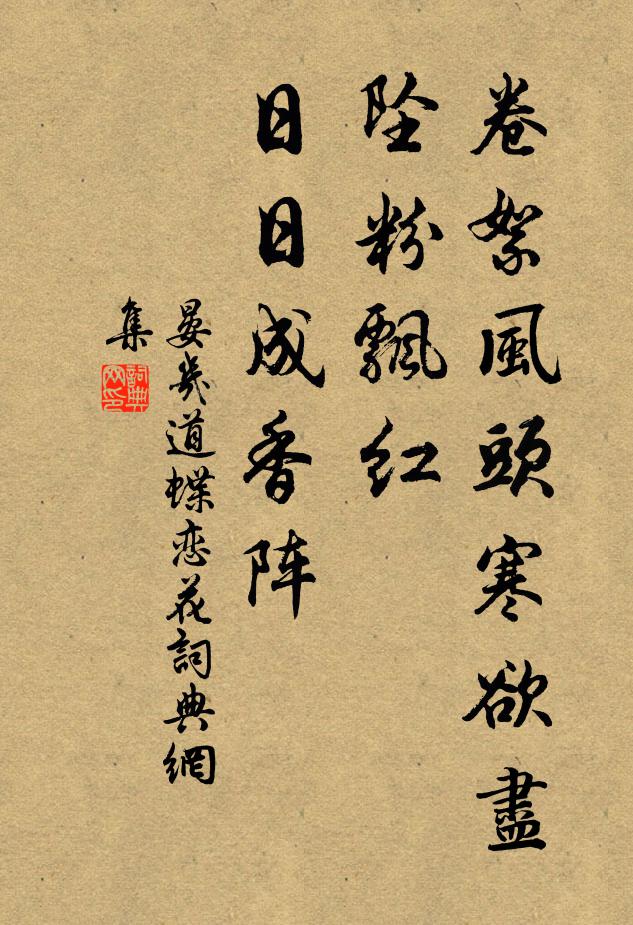 卷絮風頭寒欲盡
坠粉飄红
日日成香阵
晏幾道蝶恋花詞典網
集
詞典
网印